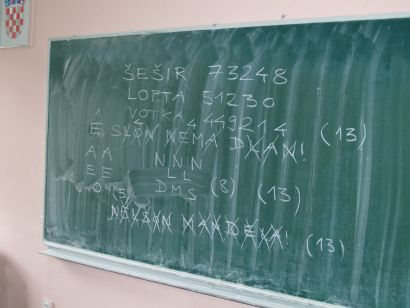 ŠEŠIR 73248
LOPTA 51230
VOTKA 449214
Ê, SLŽN NEMA DLAN! (13)
A A N N N
E E L L
O (5) DMS (8) (13)
NELSON MANDELA! (13)